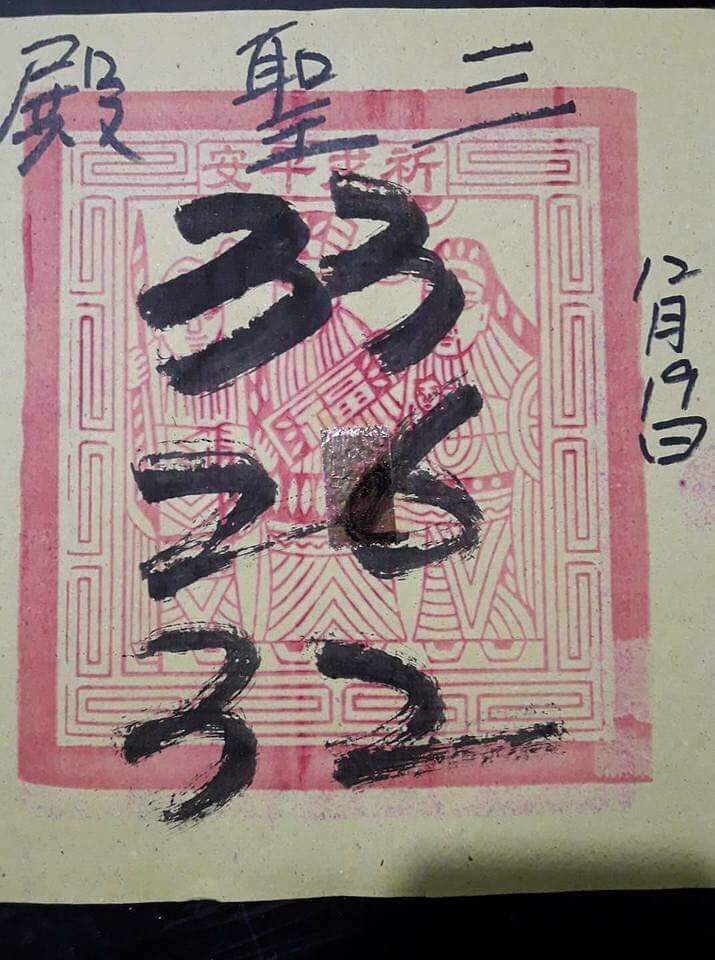 三聖殿
祈求平安
33
26
32
12月19日